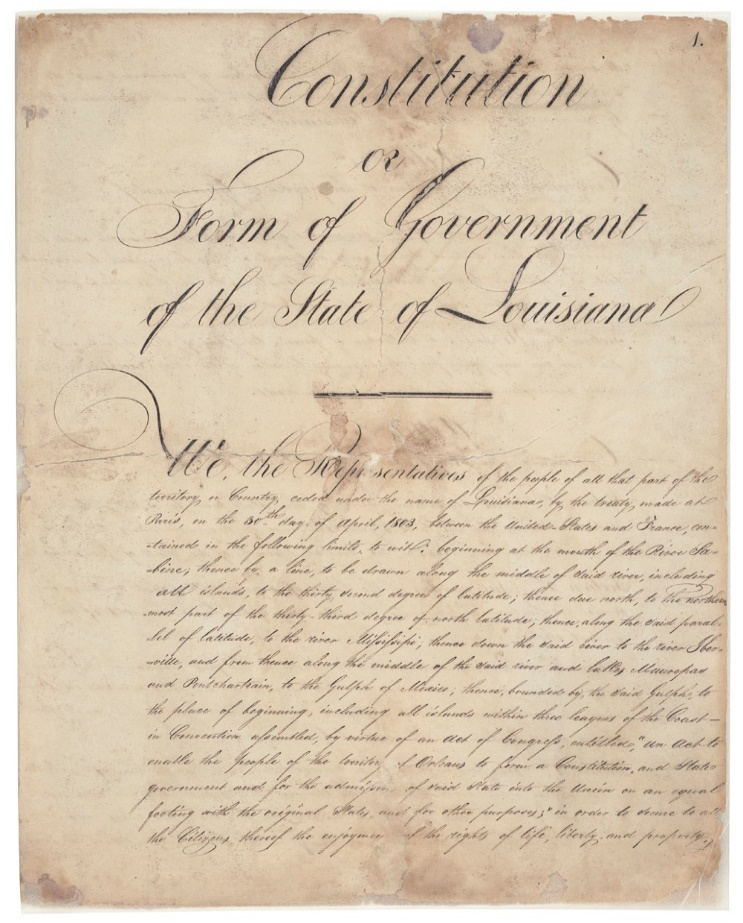 1.
Constitution
or
Form of Government
of the State of Louisiana
We, the Representatives of the people of all that part of the
territory, or Country, ceded under the name of Louisiana, by the treaty, made at
Paris, on the 30th day, of April, 1803, between the United States and France, con-
tained in the following limits, to wit: beginning at the mouth of the River Sa-
bine, thence by, a line, to be drawn along the middle of said river, including
all islands, to the thirty second degree of latitude; thence due north, to the northern
most part of the thirty-third degree of north latitude, thence, along the said paral-
lel of latitude, to the river Missisippi, thence down the said river to the river Iber-
ville, and from thence along the middle of the said river and lakes Maurepas
and Pontchartrain, to the Gulph of Mexico; thence, bounded by, the said Gulph, to
the place of beginning, including all islands within three leagues of the Coast—
in Convention assembled, by virtue of an Act of Congress, entitled, "an Act to
enable the people of the of Orleans to form a Constitution, and State
government and for the admission of said State into the Union on an equal
footing with the original States, and for other purposes;" in order to secure to all
the Citizens thereof the of the rights of life, liberty, and property,